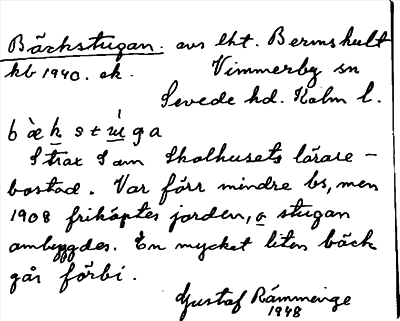 Bäckstugan. avs lht. Bermshult
hb 1940. ek. Vimmerby sn
Sevede hd. Kalm l.
b æ̀ k s t ú g a
Strax S om Skolhusets lärare-
bostad. Var förr mindre bs, men
1908 friköptes jorden, o stugan
ombyggdes. En mycket liten bäck
går förbi.
Gustaf Rämmeinge
1948